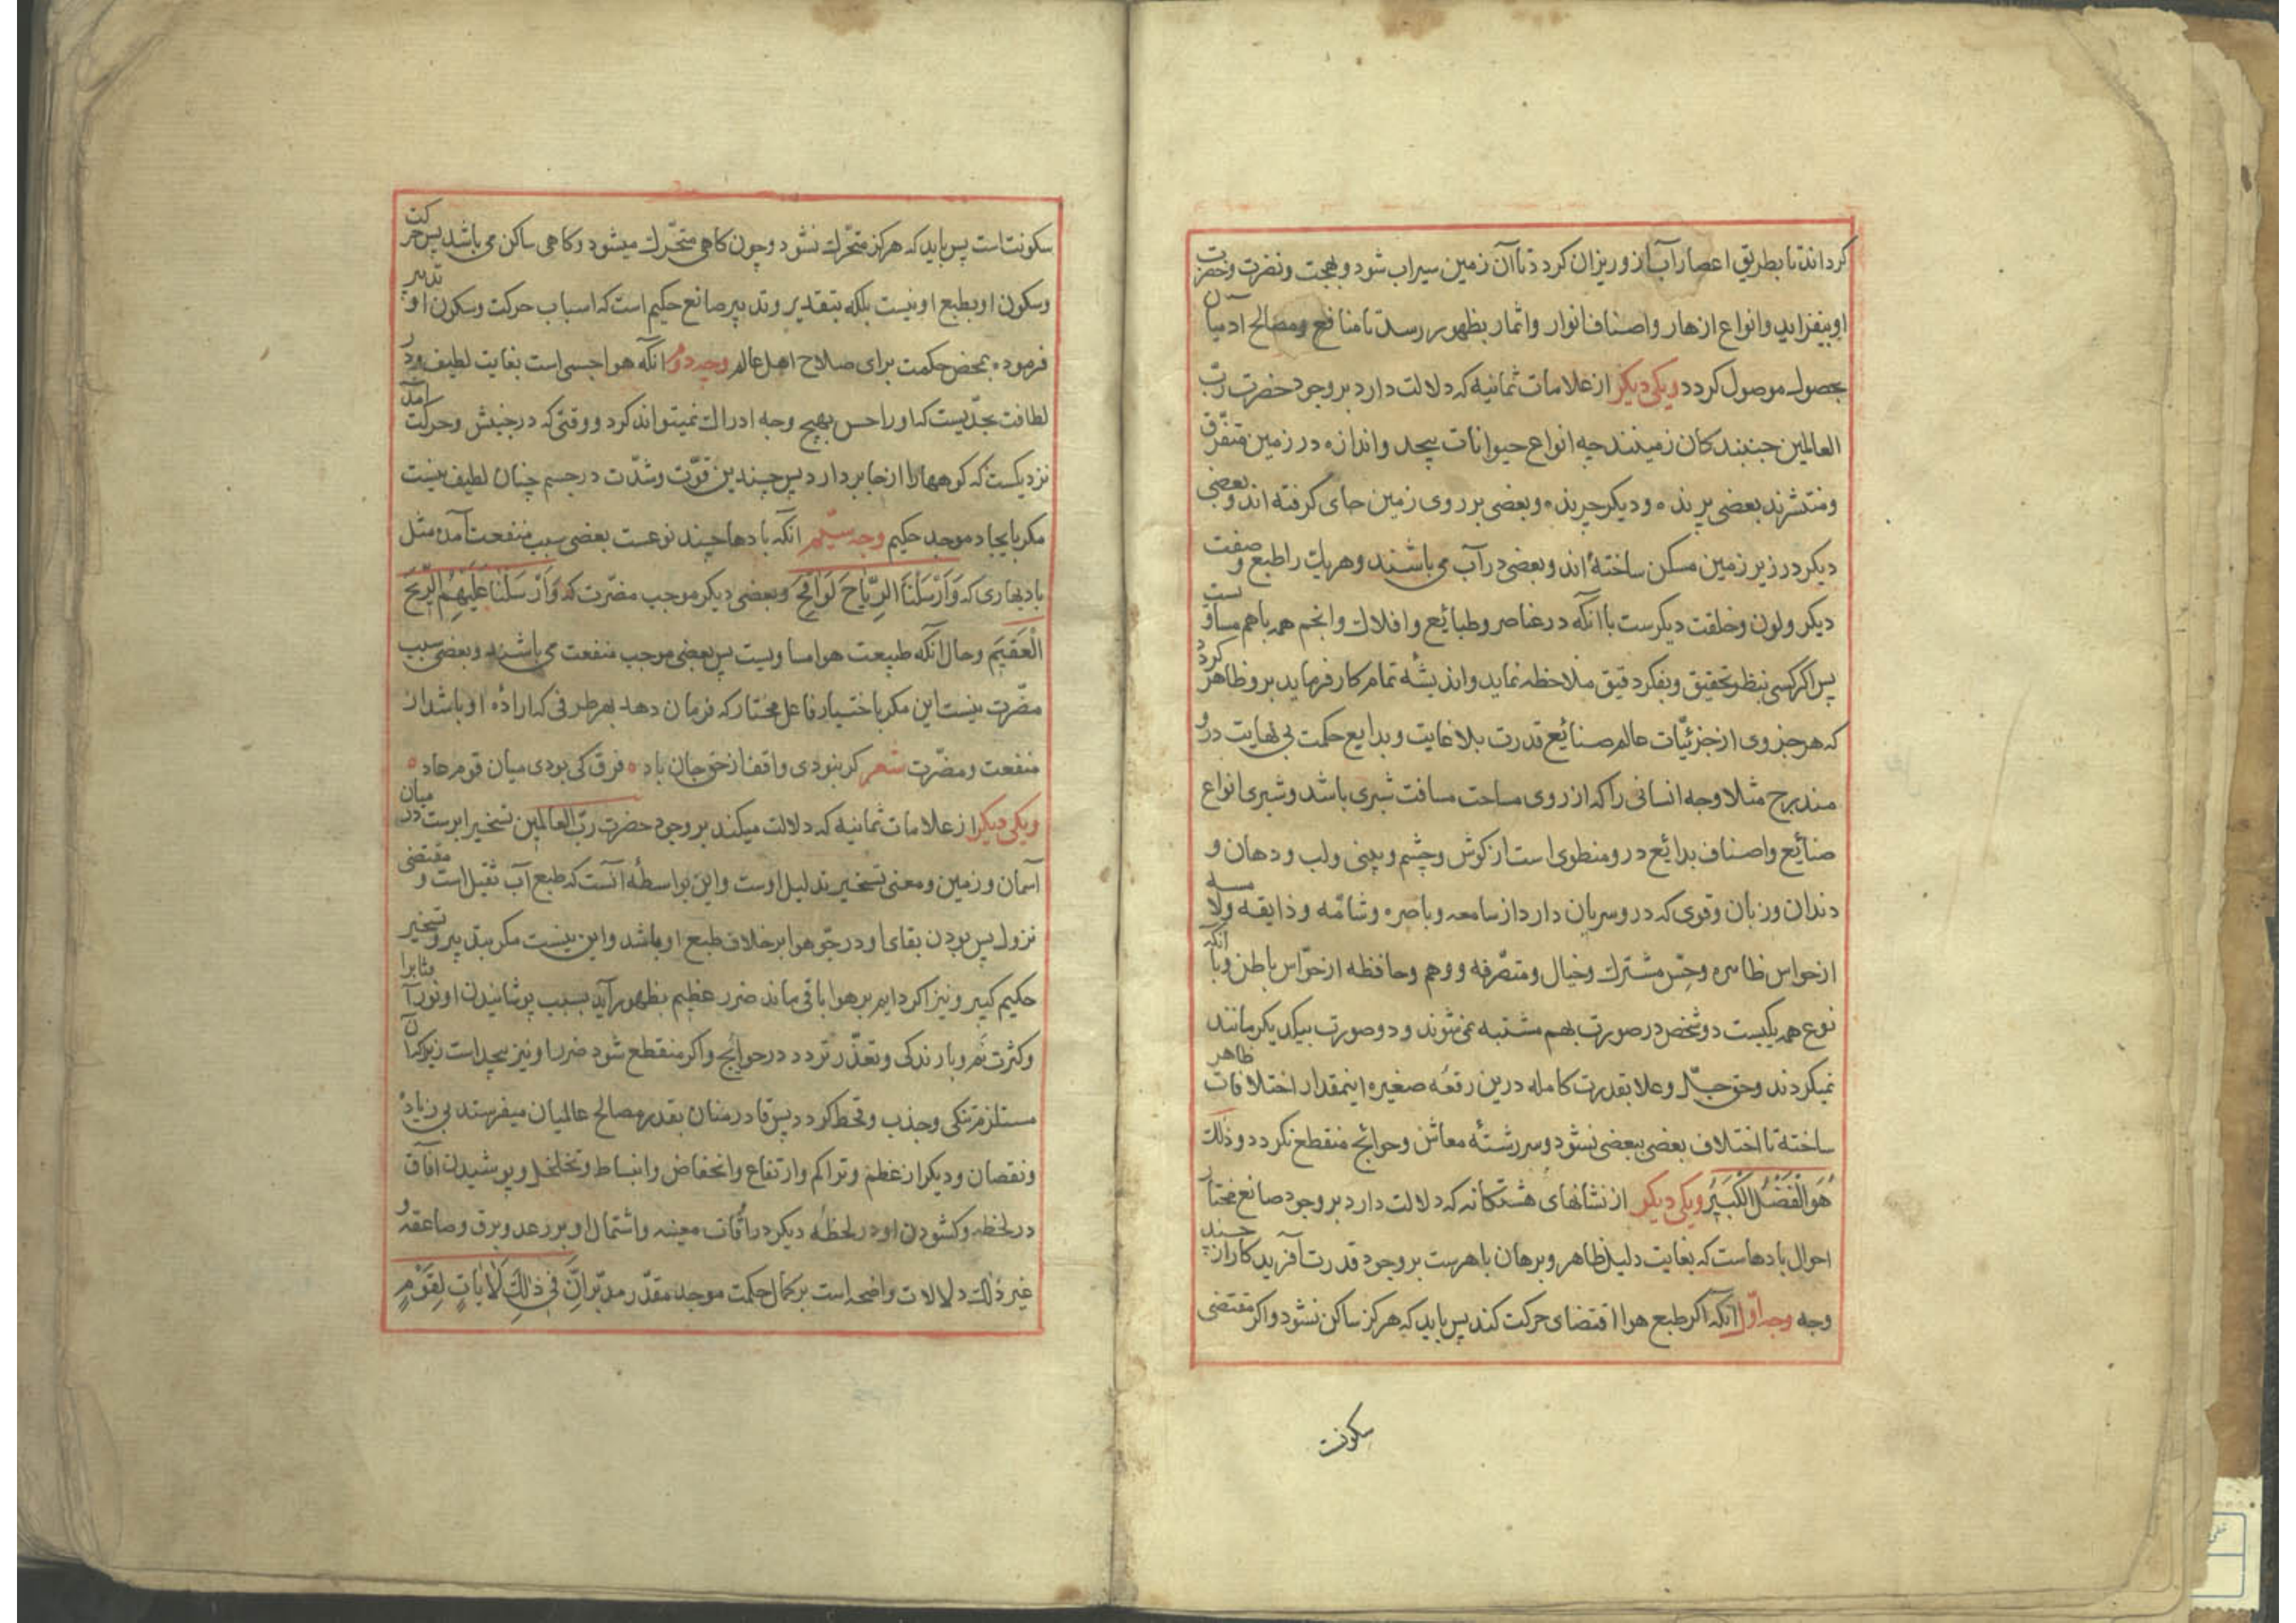 کرداند تا بطریق اعصار آب ازو ریزان کردد تا آن زمین سیراب شود و بهجت و نضرت و خضرت
او بیفزاید و انواع ازهار و اصناف انوار و اثمار بظهور رسد تا منافع و مصالح ادمیان
بحصول موصول کردد و یکی دیکر از علامات ثمانیه که دلالت دارد بر وجود حضرت رب
العالمین جنبندکان زمینند چه انواع حیوانات بیحد و اندازه در زمین متفرق
و منتشرند بعضی پرنده و دیکر چرنده و بعضی بر روی زمین جای کرفته اند و بعضی
دیکر در زیر زمین مسکن ساختهٔ اند و بعضی در آب می باشند و هر یک را طبع و صفت
دیکر و لون و خلقت دیکرست با انکه در عناصر و طبائع و افلاک و انجم همه باهم مساویست
پس اکر کسی بنظر تحقیق و بفکر دقیق ملاحظه نماید و اندیشه تمام کار فرماید برو ظاهر کردد
که هر جزوی از جزئیّات عالم صنائع قدرت بلا غایت و بدایع حکمت بی نهایت درو
مندرج مثلا وجه انسانی را که از روی مساحت مسافت شبری باشد و شبری انواع
صنائع و اصناف بدائع درو منطوی است از کوش و چشم و بینی و لب و دهان و
دندان و زبان و قوی که درو سریان دارد از سامعه و باصره و شامّه و ذایقه و لامسه
از حواس ظاهره و حسّ مشترک و خیال و متصرّفه و وهم و حافظه از حوّاس باطن و با انکه
نوع همه یکیست دو شخص در صورت بهم مشتبه نمی شوند و دو صورت بیکدیکر مانند
نمیکردند و حق جلّ و علا بقدرت کامله درین رقعه صغیره اینمقدار اختلافات ظاهر
ساخته تا اختلاف بعضی ببعضی نشود و سررشتهٔ معاش و حوائج منقطع نکردد و ذلک
هُوَ الْفَضْلُ الْکَبِیرُ و یکی دیکر از نشانهای هشتکانه که دلالت دارد بر وجود صانع مختار
احوال بادهاست که بغایت دلیل ظاهر و برهان باهرست بر وجود قدرت آفریدکار از چند
وجه وجه اوّل انکه اکر طبع هوا اقتضای حرکت کند پس باید که هرکز ساکن نشود و اکر مقتضی
سکونت
سکونت است پس باید که هرکز متحرّک نشود و چون کاهی متحّرک میشود و کاهی ساکن می باشد پس حرکت
و سکون او بطبع او نیست بلکه بتقدیر و تدبیر صانع حکیم است که اسباب حرکت و سکون او تدبیر
فرموده بمحض حکمت برای صلاح اهل عالم وجه دوم انکه هوا جسمی است بغایت لطیف و در
لطافت بحدّیست که او را حس بهیچ وجه ادراک نمیتواند کرد و وقتی که در جنبش و حرکت آمد
نزدیکست که کوهها را از جا بردارد پس چندین قوّت و شدّت در جسم چنان لطیف نیست
مکر بایجاد موجد حکیم وجه سیّم انکه بادها چند نوعست بعضی سبب منفعت آمده مثل
باد بهاری که وَاَرْسَلْنَا الرِّیَاحَ لَوَاقِحَ و بعضی دیکر موجب مضرّت که وَاَرْسَلْنَا عَلَیْهِمُ الرِّیحَ
الْعَقِیمَ و حال انکه طبیعت هوا مساویست پس بعضی موجب منفعت می باشند و بعضی سبب
مضّرت نیست این مکر باختیار فاعل مختار که فرمان دهد بهر طرفی که ارادهٔ او باشد از
منفعت و مضرّت شعر کر بنودی واقف از حق جان باد ٥ فرق کی بودی میان قوم عاد ٥
و یکی دیکر از علامات ثمانیه که دلالت میکند بر وجود حضرت رب العالمین تسخیر ابرست در میان
آسمان و زمین و معنی تسخیر تذلیل اوست و این بواسطهٔ آنست که طبع آب ثقیل است و مقتضی
نزول پس بودن بقای او در جوّ هوا بر خلاف طبع او باشد و این نیست مکر بتدبیر و تسخیر
حکیم کبیر و نیز اکر دایم بر هوا باقی ماند ضرر عظیم بظهور آید بسبب پوشانیدن او نور آفتاب را
و کثرت نم و بارندکی و تعذّر تردد در حوائج و اکر منقطع شود ضرر او نیز بیحد است زیرا که آن
مستلزم تنکی و جذب و قحط کردد پس قادر منان بقدر مصالح عالمیان میفرستد بی زیاد
و نقصان و دیکر از عظم و تراکم و ارتفاع و انخفاض و انبساط و تخلخل و پوشیدن افاق
در لحظه و کشودن او در لحظهٔ دیکر در اوقات معینه و اشتمال او بر رعد و برق و صاعقه و
غیر ذٰلک دلالات واضحه است بر کمال حکمت موجد مقدّر مدبّر اِنَّ فِی ذٰلِکَ لَاٰیَاتٍ لِقَوْمٍ